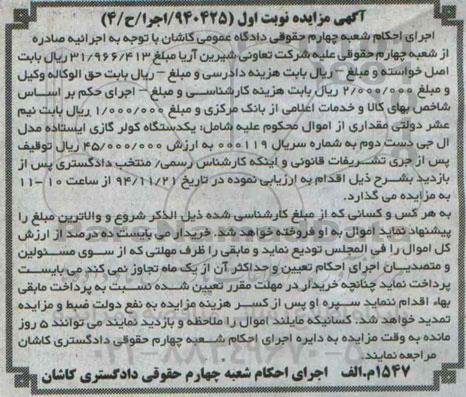 آگهی مزایده نوبت اول (۹۴۰۴۲۵/اجرا/ح/۴)
اجرای احکام شعبه چهارم حقوقی دادگاه عمومی کاشان با توجه به اجرائیه صادره
از شعبه چهارم حقوقی علیه شرکت تعاونی شیرین آریا مبلغ ۳۱/۹۶۶/۴۱۳ ریال بابت
اصل خواسته و مبلغ - ریال بابت هزینه دادرسی و مبلغ - ریال بابت حق الوکاله وکیل
و مبلغ ۲/۰۰۰/۰۰۰ ریال بابت هزینه کارشناسی و مبلغ - اجرای حکم بر اساس
شاخص بهای کالا و خدمات اعلامی از بانک مرکزی و مبلغ ۱/۰۰۰/۰۰۰ ریال بابت نیم
عشر دولتی مقداری از اموال محکوم علیه شامل: یکدستگاه کولر گازی ایستاده مدل
ال جی دست دوم به شماره سریال ۰۰۰۱۱۹ به ارزش ۴۵/۰۰۰/۰۰۰ ریال توقیف
پس از جری تشریفات قانونی و اینکه کارشناس رسمی/ منتخب دادگستری پس از
بازدید بشرح ذیل اقدام به ارزیابی نموده در تاریخ ۹۴/۱۱/۲۱ از ساعت ۱۰-۱۱
به مزایده می گذارد.
به هر کس و کسانی که از مبلغ کارشناسی شده ذیل الذکر شروع و والاترین مبلغ را
پیشنهاد نماید اموال به او فروخته خواهد شد. خریدار می بایست ده درصد از ارزش
کل اموال را فی المجلس تودیع نماید و مابقی را ظرف مهلتی که از سوی مسئولین
و متصدیان اجرای احکام تعیین و حداکثر آن از یک ماه تجاوز نمی کند می بایست
پرداخت نماید چنانچه خریدار در مهلت مقرر تعیین شده نسبت به پرداخت مابقی
بهاء اقدام ننماید سپرده او پس از کسر هزینه مزایده به نفع دولت ضبط و مزایده
تمدید خواهد شد. کسانیکه مایلند اموال را ملاحظه و بازدید نمایند می توانند ۵ روز
مانده به وقت مزایده به دایره اجرای احکام شعبه چهارم حقوقی دادگستری کاشان
مراجعه نمایند.
۱۵۴۷م.الف اجرای احکام شعبه چهارم حقوقی دادگستری کاشان
۰۲۱-۸۸۳۴۹۶۷۰-۵